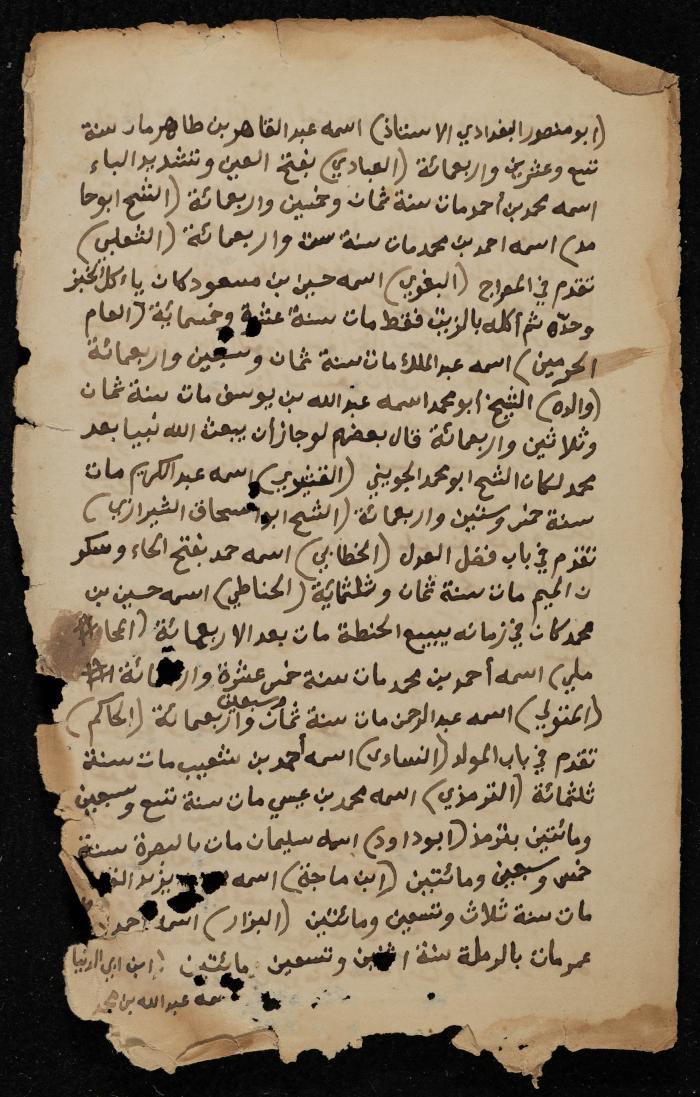 (ابو منصور البغدادي الاستاذ) اسمه عبد القاهر بن طاهر مات سنة
تسع وعشرين واربعمائة (العبادي) بفتح العين وتشديد الباء
اسمه محمد بن أحمد مات سنة ثمان وخمسين واربعمائة (الشيخ ابو حا
مد) اسمه احمد بن محمد مات سنة ست واربعمائة (الثعلبي)
تقدم في المعراج (البغوي) اسمه حسين بن مسعود كان ياءكل الخبز
وحده ثم أكله بالزيت فقط مات سنة عشرة وخمسمائة (امام
الحرمين) اسمه عبد الملك مات سنة ثمان وسبعين واربعمائة
(والده) الشيخ أبو محمد اسمه عبد الله بن يوسف مات سنة ثمان
وثلاثين واربعمائة قال بعضهم لو جاز أن يبعث الله نبيا بعد
محمد لكان الشيخ ابو محمد الجويني (القشيري) اسمه عبد الكريم مات
سنة خمس وستين واربعمائة (الشيخ ابو اسحاق الشيرازي)
تقدم في باب فضل العدل (الخطابي) اسمه حمد بفتح الحاء وسكو
ن الميم مات سنة ثمان وثلثمائة (الحناطي) اسمه حسين بن
محمد كان في زمانه يبيع الحنطة مات بعد الاربعمائة (المحا
ملي) اسمه أحمد بن محمد مات سنة خمس عشرة واربعمائة
(المتولي) اسمه عبد الرحمن مات سنة ثمان وسبعين واربعمائة (الحاكم)
تقدم في باب المولد (النساءى) اسمه أحمد بن شعيب مات سنة
ثلثمائة (الترمذي) اسمه محمد بن عيسي مات سنة تسع وسبعين
ومائتين بترمذ (ابو داود) اسمه سليمان مات بالبصرة سنة
خمس وسبعين ومائتين (ابن ماجة) اسمه يزيد
مات سنة ثلاث وتسعين ومائتين (البزار) اسمه احمد
عمر مات بالرملة سنة اثنين وتسعين ومائتين (ابن ابي الدنيا
اسمه عبد الله بن محمد